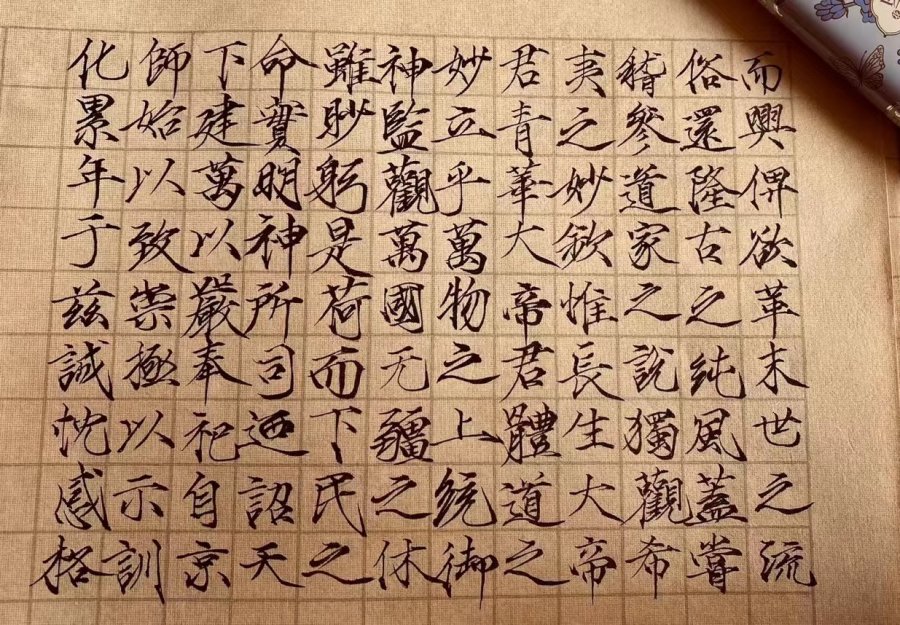 而興俾欲革末世之流
俗還隆古之純風蓋嘗
稽參道家之說獨觀希
夷之妙欽惟長生大帝
君青華大帝君體道之
妙立乎萬物之上統御
神監觀萬國无疆之休
雖眇躬是荷而下民之
命實明神所司迺詔天
下建萬以嚴奉祀自京
師始以致崇極以示訓
化累年于兹誠忱感格